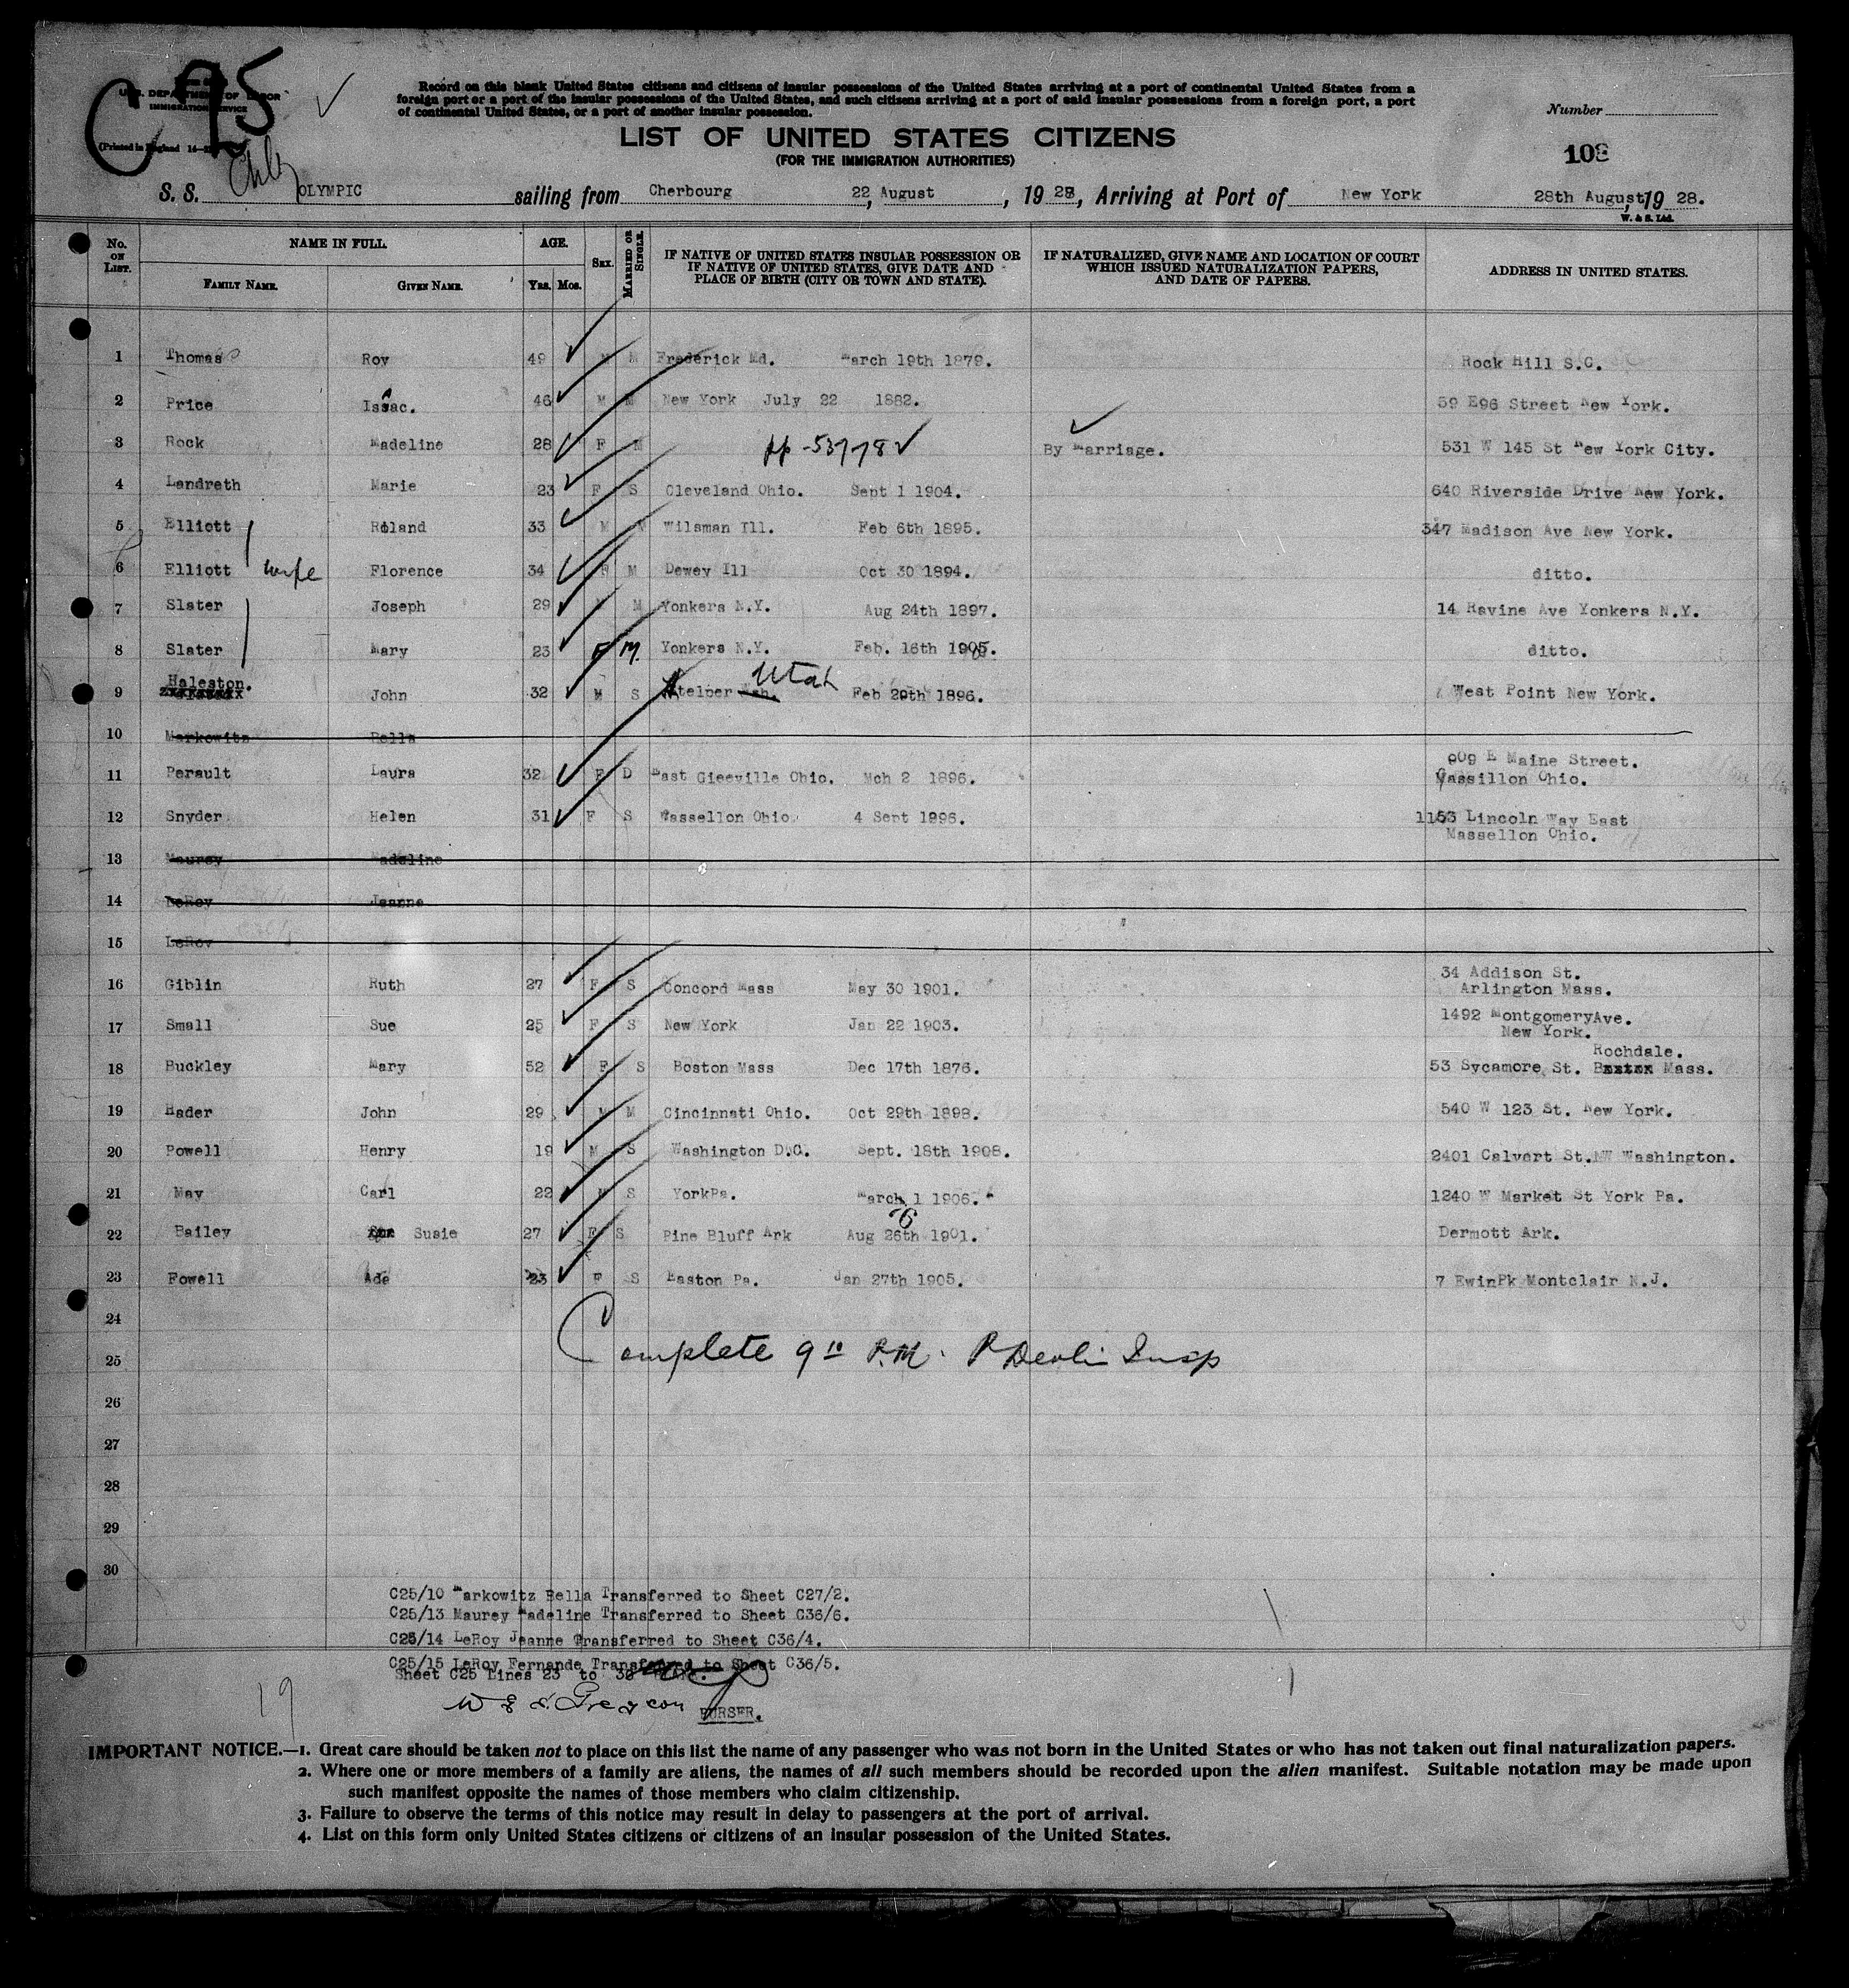 C 25
U.S. DEPARTMENT OF LABOR
IMMIGRATION SERVICE
(Printed in England
Record on this blank United States citizens and citizens of insular possessions of the United States arriving at a port of continental United States from a
foreign port or a port of the insular possessions of the United States, and such citizens arriving at a port of said insular possessions from a foreign port, a port
of continental United States, or a port of another insular possession.
Number
LIST OF UNITED STATES CITIZENS
(FOR THE IMMIGRATION AUTHORITIES)
108
S. S. OLYMPIC sailing from Cherbourg 22, August, 1928, Arriving at Port of New York 28th August, 1928.
W. & S. Ltd.
No. ON LIST. NAME IN FULL. AGE. SEX. MARRIED OR SINGLE. IF NATIVE OF UNITED STATES INSULAR POSSESSION OR IF NATIVE OF UNITED STATES, GIVE DATE AND PLACE OF BIRTH (CITY OR TOWN AND STATE). IF NATURALIZED, GIVE NAME AND LOCATION OF COURT WHICH ISSUED NATURALIZATION PAPERS, AND DATE OF PAPERS. ADDRESS IN UNITED STATES.
FAMILY NAME. GIVEN NAME. YRS. MOS.
1 Thomas Roy 49 M M Frederick Md. March 19th 1879. Rock Hill S.C.
2 Price Isaac. 46 M M New York July 22 1882. 59 E96 Street New York.
3 Rock Madeline 28 F M pp-537782 By Marriage. 531 W 145 St New York City.
4 Landreth Marie 23 F S Cleveland Ohio. Sept 1 1904. 640 Riverside Drive New York.
5 Elliott Roland 33 M M Wilsman Ill. Feb 6th 1895. 347 Madison Ave New York.
6 Elliott wife Florence 34 F M Dewey Ill Oct 30 1894. ditto.
7 Slater Joseph 29 M M Yonkers N.Y. Aug 24th 1897. 14 Ravine Ave Yonkers N.Y.
8 Slater Mary 23 F M. Yonkers N.Y. Feb. 16th 1905. ditto.
9 Haleston. John 32 M S Utah Feb 29th 1896. West Point New York.
10 Markowitz Bella
11 Perault Laura 32 F D East Gieeville Ohio. Mch 2 1896. 909 E Maine Street.
Massillon Ohio.
12 Snyder Helen 31 F S Massellon Ohio. 4 Sept 1896. 1153 Lincoln Way East
Massellon Ohio.
13 Maurey Madeline
14 LeRoy Jeanne
15 LeRoy
16 Giblin Ruth 27 F S Concord Mass May 30 1901. 34 Addison St.
Arlington Mass.
17 Small Sue 25 F S New York Jan 22 1903. 1492 Montgomery Ave.
New York.
18 Buckley Mary 52 F S Boston Mass Dec 17th 1876. 53 Sycamore St. Rochdale. Mass.
19 Hader John 29 M M Cincinnati Ohio. Oct 29th 1898. 540 W 123 St. New York.
20 Powell Henry 19 M S Washington D.C. Sept. 18th 1908. 2401 Calvert St. NW Washington.
21 May Carl 22 M S YorkPa. March 1 1906. 1240 W Market St York Pa.
22 Bailey Susie 27 F S Pine Bluff Ark Aug 26th 1901. Dermott Ark.
23 Fowell Ade 23 F S Easton Pa. Jan 27th 1905. 7 EwinPk Montclair N.J.
24
25 Complete 9 10 P.M. P Devlin Insp
26
27
28
29
30
C25/10 Markowitz Bella Transferred to Sheet C27/2.
C25/13 Maurey Madeline Transferred to Sheet C36/6.
C25/14 LeRoy Jeanne Transferred to Sheet C36/4.
C25/15 LeRoy Fernande Transferred to Sheet C36/5.
Sheet C25 Lines 23 to 30
19
PURSER.
IMPORTANT NOTICE.—1. Great care should be taken not to place on this list the name of any passenger who was not born in the United States or who has not taken out final naturalization papers.
2. Where one or more members of a family are aliens, the names of all such members should be recorded upon the alien manifest. Suitable notation may be made upon
such manifest opposite the names of those members who claim citizenship.
3. Failure to observe the terms of this notice may result in delay to passengers at the port of arrival.
4. List on this form only United States citizens or citizens of an insular possession of the United States.